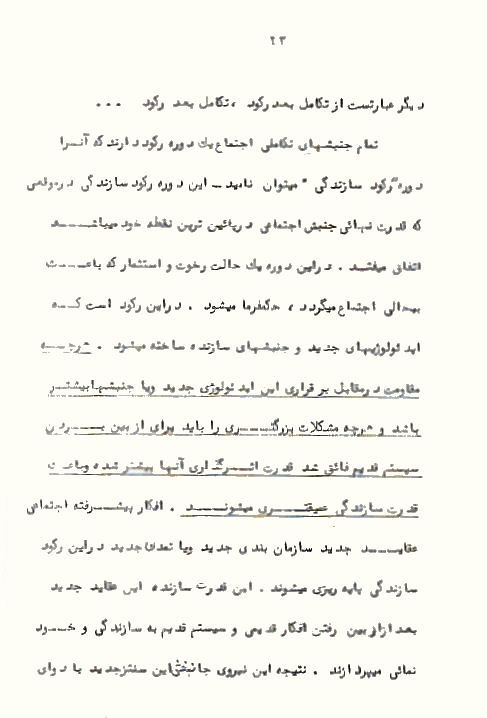 ۲۳
دیگر عبارتست از تکامل بعد رکود ، تکامل بعد رکود ...
تمام جنبشهای تکاملی اجتماع یک دوره رکود دارند که آنرا
دوره "رکود سازندگی" میتوان نامید ـ این دوره رکود سازندگی درموقعی
که قدرت نهائی جنبش اجتماعی درپائین ترین نقطه خود میباشــــد
اتفاق میفتــد . دراین دوره یک حالت رخوت و استثمار که باعــــث
بیحالی اجتماع میگردد ، حکمفرما میشود . دراین رکود است کـــه
اید ئولوژیهای جدید و جنبشهای سازنده ساخته میشود . هرچـــه
مقاومت درمقابل برقراری این اید ئولوژی جدید ویا جنبشهابیشتـر
باشد و هرچه مشکلات بزرگتـــــری را باید برای از بین بـــردن
سیستم قدیم فائق شد قدرت اثــرگذاری آنها بیشتر شده وباعث
قدرت سازندگی عمیقتـــری میشونــــد . افکار پیشــرفته اجتماعی
عقایـــد جدید سازمان بندی جدید ویا تمدن جدید دراین رکود
سازندگی پایه ریزی میشوند . این قدرت سازنده این عقاید جدید
بعد ازازبین رفتن افکار قدیمی و سیستم قدیم به سازندگی و خــود
نمائی میپردازند . نتیجه این نیروی جانبخش این سنتزجدید با دوای